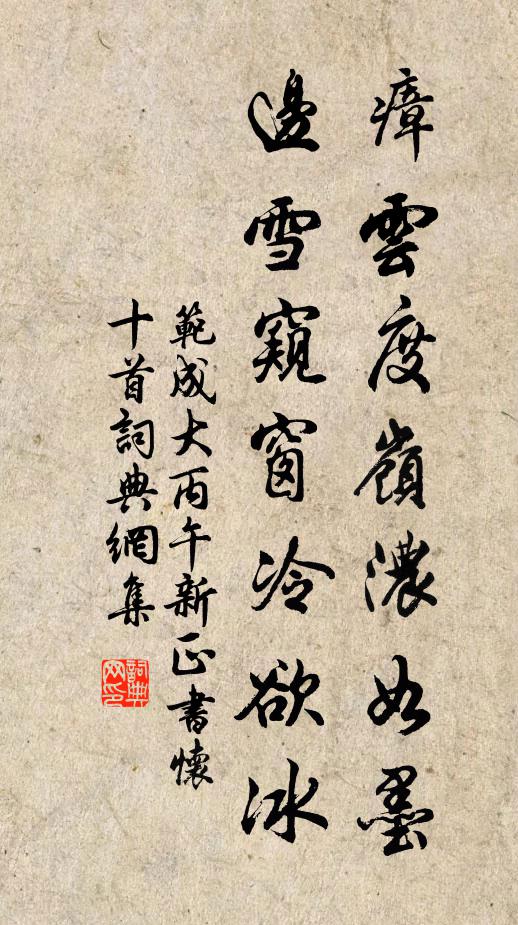 瘴雲度嶺濃如墨
邊雪窺窗冷欲冰
範成大丙午新正書懷
十首詞典網集
詞典
网印